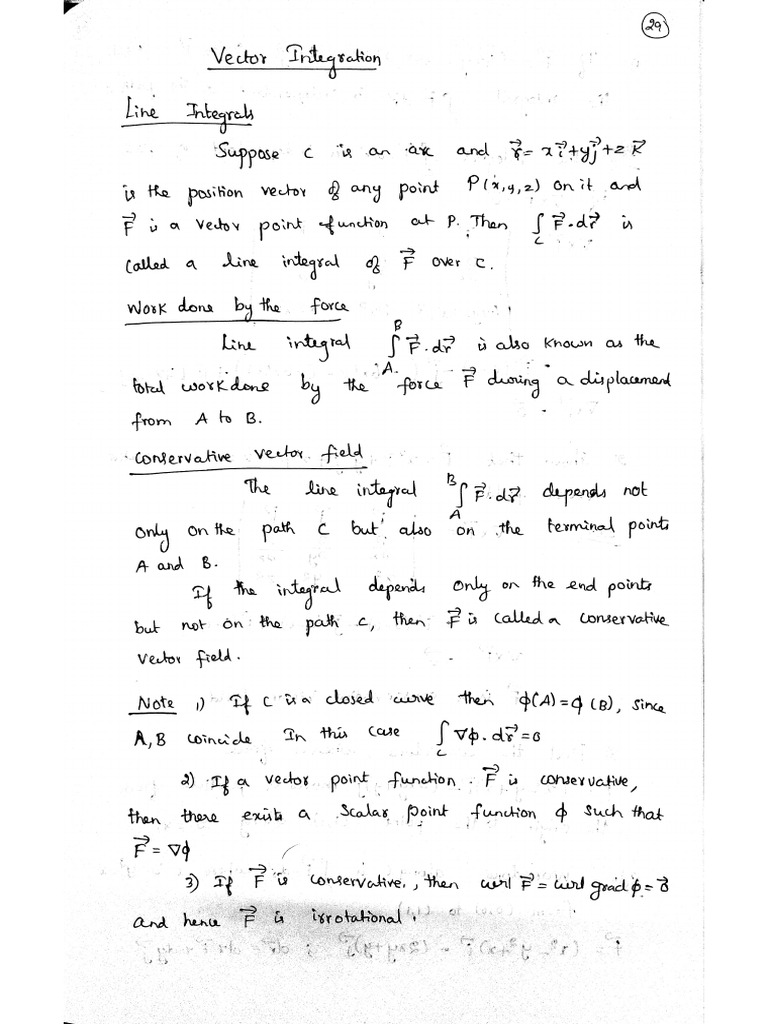 29
Vector Integration
Line Integrals
Suppose C is an arc and r⃗ = x i⃗ + y j⃗ + z k⃗
is the position vector of any point P(x,y,z) on it and
F⃗ is a vector point function at P. Then ∫_C F⃗·dr⃗ is
called a line integral of F⃗ over C.
Work done by the force
Line integral ∫_A^B F⃗·dr⃗ is also known as the
total workdone by the force F⃗ during a displacement
from A to B.
Conservative vector field
The line integral ∫_A^B F⃗·dr⃗ depends not
only on the path C but also on the terminal points
A and B.
If the integral depends only on the end points
but not on the path C, then F⃗ is called a conservative
vector field.
Note 1) If C is a closed curve then φ(A) = φ(B), since
A, B coincide In this case ∫_C ∇φ·dr⃗ = 0
2) If a vector point function F⃗ is conservative,
then there exists a scalar point function φ such that
F⃗ = ∇φ
3) If F⃗ is conservative, then curl F⃗ = curl grad φ = 0⃗
and hence F⃗ is irrotational.